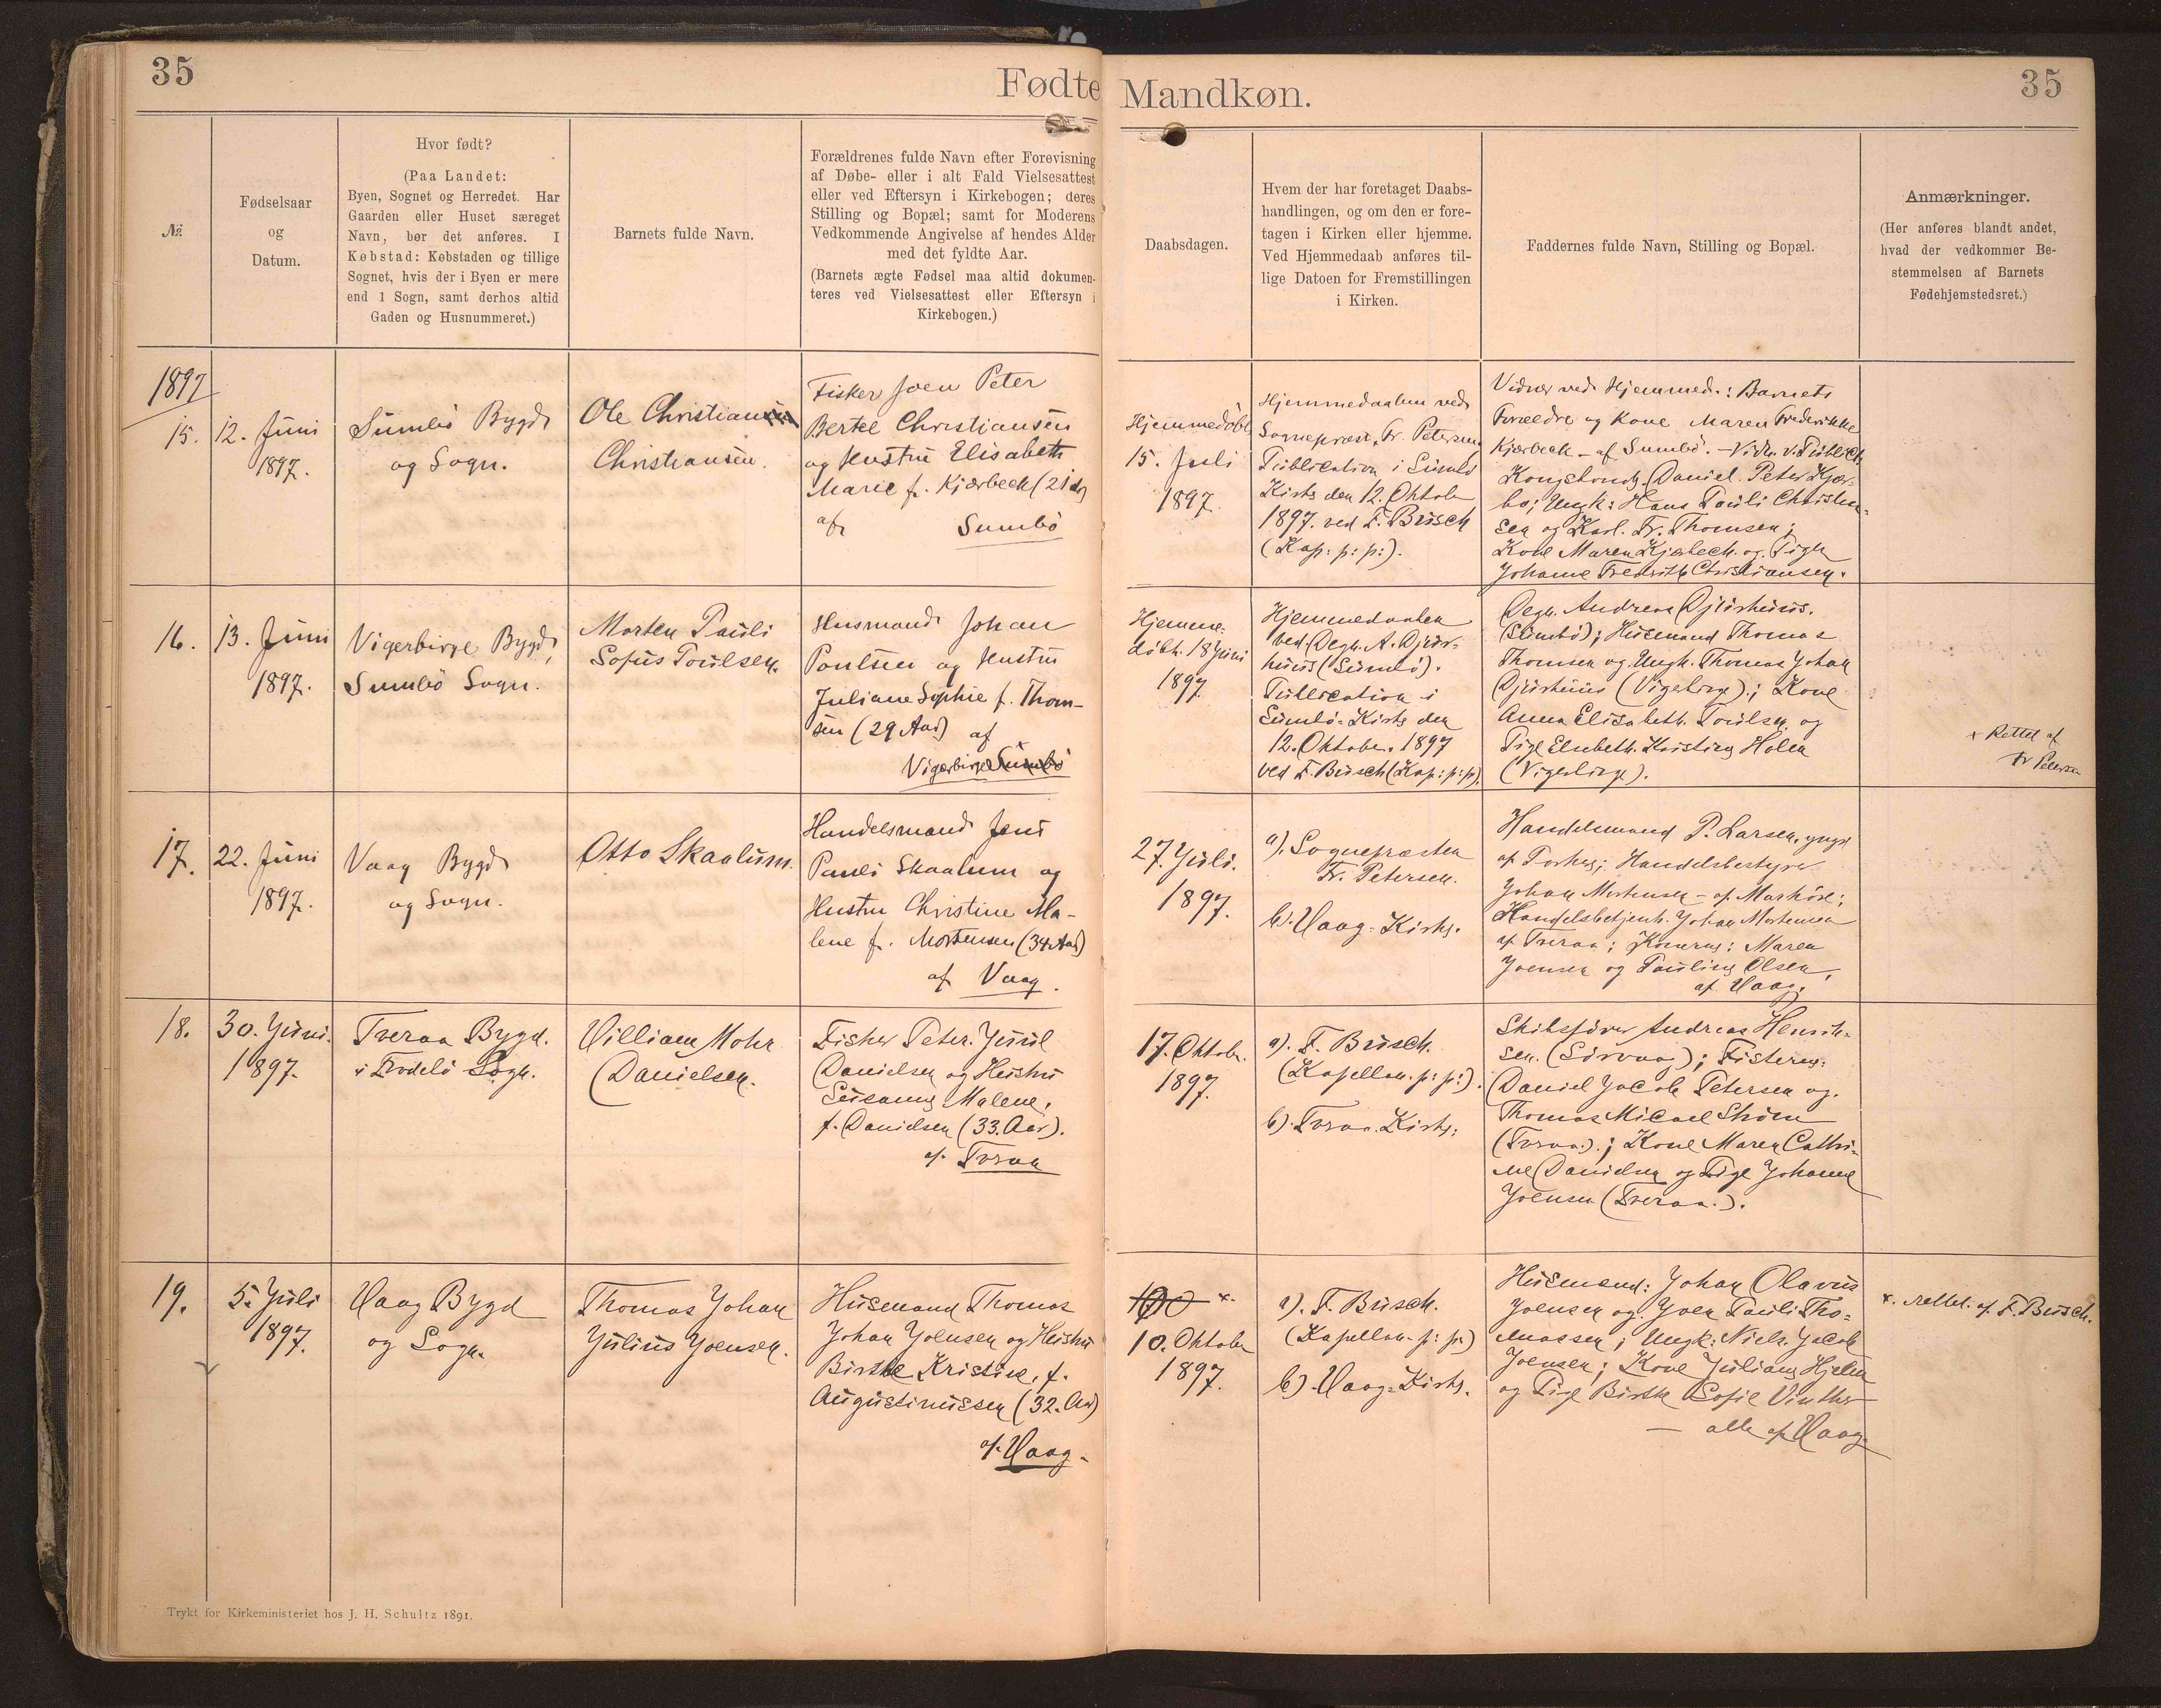 35
Fødte
Mandkøn.
35
№
Fødselsaar
og
Datum.
Hvor født?
(Paa Landet:
Byen, Sognet og Herredet. Har
Gaarden eller Huset særeget
Navn, bør det anføres. I
Købstad: Købstaden og tillige
Sognet, hvis der i Byen er mere
end 1 Sogn, samt derhos altid
Gaden og Husnummeret.)
Barnets fulde Navn.
Forældrenes fulde Navn efter Forevisning
af Døbe- eller i alt Fald Vielsesattest
eller ved Eftersyn i Kirkebogen; deres
Stilling og Bopæl; samt for Moderens
Vedkommende Angivelse af hendes Alder
med det fyldte Aar.
(Barnets ægte Fødsel maa altid dokumen-
teres ved Vielsesattest eller Eftersyn i
Kirkebogen.)
Daabsdagen.
Hvem der har foretaget Daabs-
handlingen, og om den er fore-
tagen i Kirken eller hjemme.
Ved Hjemmedaab anføres til-
lige Datoen for Fremstillingen
i Kirken.
Faddernes fulde Navn, Stilling og Bopæl.
Anmærkninger.
(Her anføres blandt andet,
hvad der vedkommer Be-
stemmelsen af Barnets
Fødehjemstedsret.)
1897
15.
12. Juni
1897.
Sumbö Bygd
og Sogn.
Ole Christian
Christiansen.
Fisker Joen Peter
Bertel Christiansen
og Hustru Elisabeth
Marie f. Kjærbech (21 Aar)
af
Sumbö
Hjemmedöbt
15. Juli
1897.
Hjemmedaaben ved
Sognepræst Fr. Petersen
Publication i Sumbö
Kirke den 12. Oktober
1897. ved F. Busch
(Kap: p: p:).
Vidner ved Hjemmed.: Barnets
Forældre og Kone Maren Frederikke
Kjærbech - af Sumbö. - Vidn. v. Public.
Kongsbonde Daniel Peter Kjær-
bo; Ungk: Hans Pauli Christian-
sen og Karl. Fr. Thomsen;
Kone Maren Kjærbech. og Pige
Johanne Fredrikke Christiansen.
16.
13. Juni
1897.
Vigerbirge Bygd,
Sumbö Sogn.
Morten Pauli
Sofus Poulsen.
Husmand Johan
Poulsen og Hustru
Juliane Sophie f. Thom-
sen (29 Aar) af
Vigerbirge Sumbö
Hjemme-
döbt. 18 Juni
1897
Hjemmedaaben
ved Degn. A. Djur-
huus (Sumbö).
Publication i
Sumbö-Kirke den
12. Oktober. 1897
ved F. Busch (Kap: p: p).
Degn. Andreas Djurhuus.
(Sumbö); Husmand Thomas
Thomsen og Ungk. Thomas Johan
Djurhuus (Vigebirge); Kone
Anna Elisabeth. Poulsen og
Pige Elsebeth. Kristine Holm
(Vigerbirge).
+ Rettet af
Fr Petersen
17.
22. Juni
1897.
Vaag Bygd
og Sogn.
Otto Skaalum.
Handelsmand Jens
Pauli Skaalum og
Hustru Christine Ma-
lene f. Mortensen (34 Aar)
af Vaag.
27. Juli.
1897.
a). Sognepræsten
Fr. Petersen.
b). Vaag-Kirke.
Handelsmand P. Larsen, yngr
af Porkere; Handelsbestyrer
Johan Mortensen - af
Handelsbetjent. Johan Mortensen
af Tveraa; Konerne: Maren
Joensen og Pauline Olsen,
af Vaag.
18.
30. Juni.
1897.
Tveraa Bygd.
i Frodebö Sogn.
William Mohr
Danielsen.
Fisker Peter Juul
Danielsen og Hustru
Susanne Malene,
f. Danielsen (33. Aar).
af. Tveraa
17. Oktober.
1897.
a). F. Busch.
(Kapellan. p: p:).
b). Tveraa Kirke:
Skibsförer Andreas Henrik-
sen. (Sörvaag); Fiskerne:
Daniel Jacob Petersen og
Thomas Micael Ström
(Tveraa.); Kone Maren Cathri-
ne Danielsen og Pige Johanne
Joensen (Tveraa.).
19.
5. Juli
1897.
Vaag Bygd
og Sogn.
Thomas Johan
Julius Joensen.
Husmand Thomas
Johan Joensen og Hustru
Birthe Kristine, f.
Augustinussen (32. Aar)
af. Vaag.
x.
10. Oktober
1897.
a). F. Busch.
(Kapellan. p: p:)
b). Vaag-Kirke.
Husmænd: Johan Olavus
Joensen og Joen Pauli Tho-
massen; Ungk: Niels Jacob
Joensen; Kone Juliane Hjelm
og Pige Birthe Sofie Vinther
— alle af Vaag.
x. rettet. af F. Busch.
Trykt for Kirkeministeriet hos J. H. Schultz 1891.